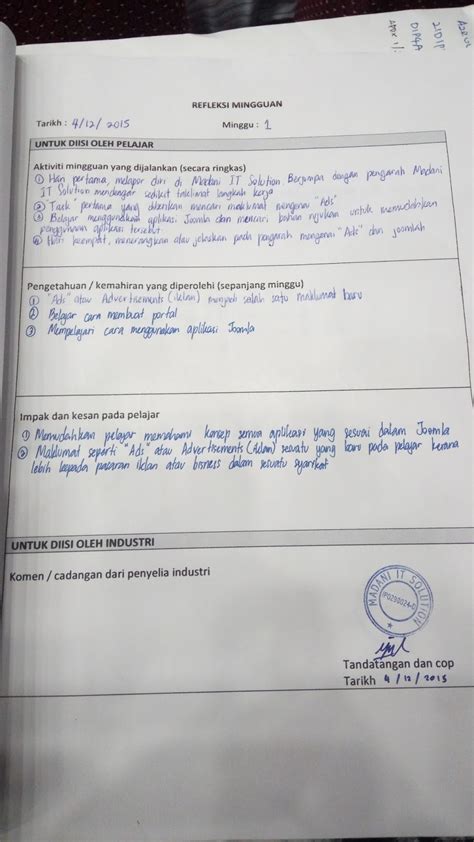 REFLEKSI MINGGUAN
Tarikh : 4/12/2015 Minggu : 1
UNTUK DIISI OLEH PELAJAR
Aktiviti mingguan yang dijalankan (secara ringkas)
① Hari pertama, melapor diri di Madani IT Solution. Berjumpa dengan pengarah Madani
IT Solution mendengar sedikit taklimat langkah kerja
② "Task" pertama yang diberikan mencari maklumat mengenai "Ads"
③ Belajar menggunakan aplikasi Joomla dan mencari bahan rujukan untuk memudahkan
penggunaan aplikasi tersebut.
④ Hari keempat, menerangkan atau jelaskan pada pengarah mengenai "Ads" dan joomlah
Pengetahuan / kemahiran yang diperolehi (sepanjang minggu)
① "Ads" atau Advertisements (iklan) menjadi salah satu maklumat baru
② Belajar cara membuat portal
③ Mempelajari cara menggunakan aplikasi Joomla
Impak dan kesan pada pelajar
① Memudahkan pelajar memahami konsep semua aplikasi yang sesuai dalam Joomla
② Maklumat seperti "Ads" atau Advertisements (iklan) sesuatu yang baru pada pelajar kerana
lebih kepada pasaran iklan atau bisness dalam sesuatu syarikat
UNTUK DIISI OLEH INDUSTRI
Komen / cadangan dari penyelia industri
MADANI IT SOLUTION
Tandatangan dan cop
Tarikh 4/12/2015